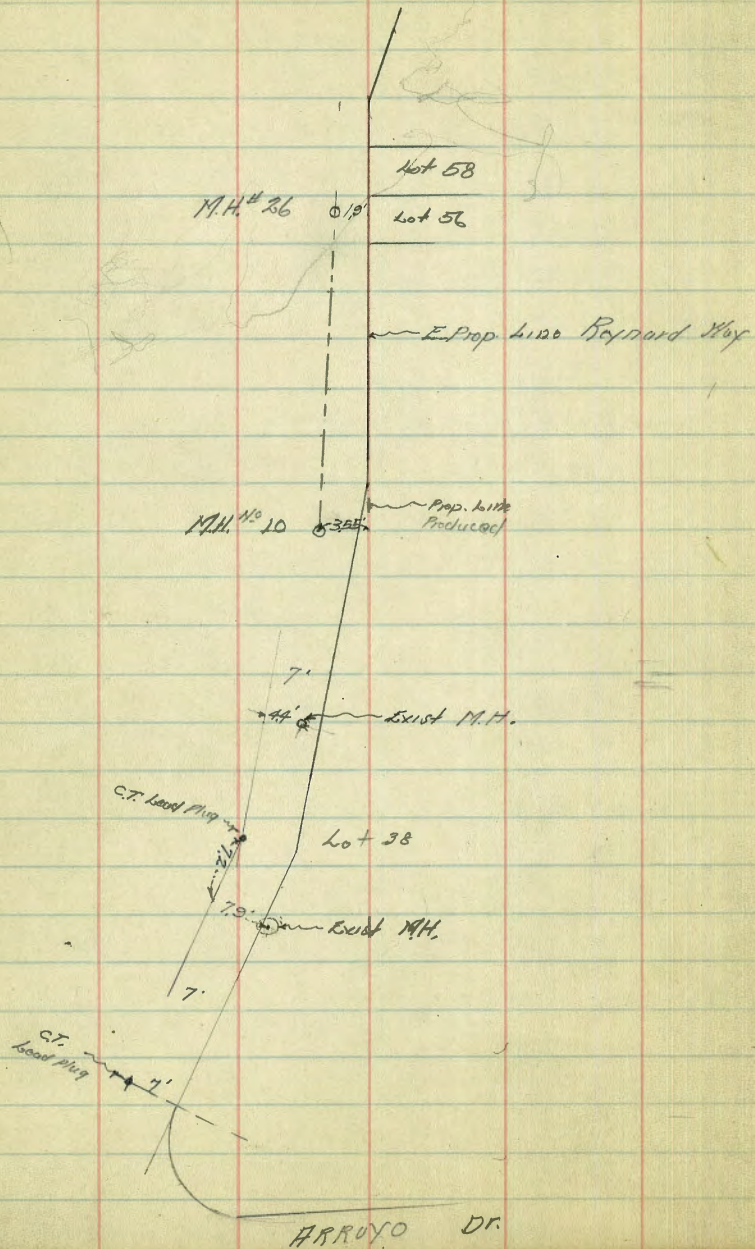 Lot 58
M.H.# 26
1.9'
Lot 56
E. Prop. Line Reynard Way
Prop. Line
Produced
M.H. No 10
3.55'
7'
4.4'
Exist M.H.
C.T. Lead Plug
7.2
Lot 38
7.9'
Exist M.H.
7'
C.T.
Lead Plug
7'
ARROYO Dr.